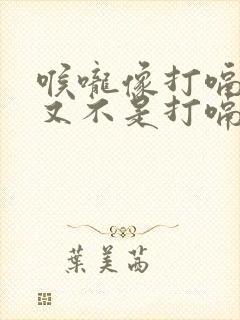 喉嚨像打嗝
又不是打嗝
葉美茜